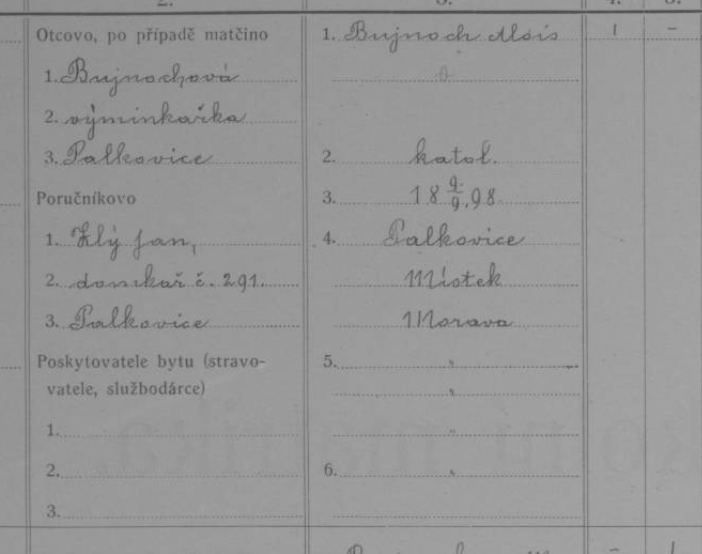 2. 3. 4. 5.
Otcovo, po případě matčino
1. Bujnochová
2. výminkařka
3. Palkovice
Poručníkovo
1. Zlý Jan,
2. domkař č. 291.
3. Palkovice
Poskytovatele bytu (stravo-
vatele, službodárce)
1.
2.
3.
1. Bujnoch Alois
2. katol.
3. 18 9/9. 98
4. Palkovice
Místek
Morava
5. "
"
"
6. "
1 –